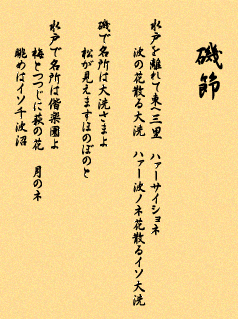 磯節
水戸を離れて東へ三里　ハァーサイショネ
波の花散る大洗　ハァー波ノネ花散るイソ大洗
磯で名所は大洗さまよ
松が見えますほのぼのと
水戸で名所は偕楽園よ
梅とつつじに萩の花　月のネ
眺めはイソ千波沼